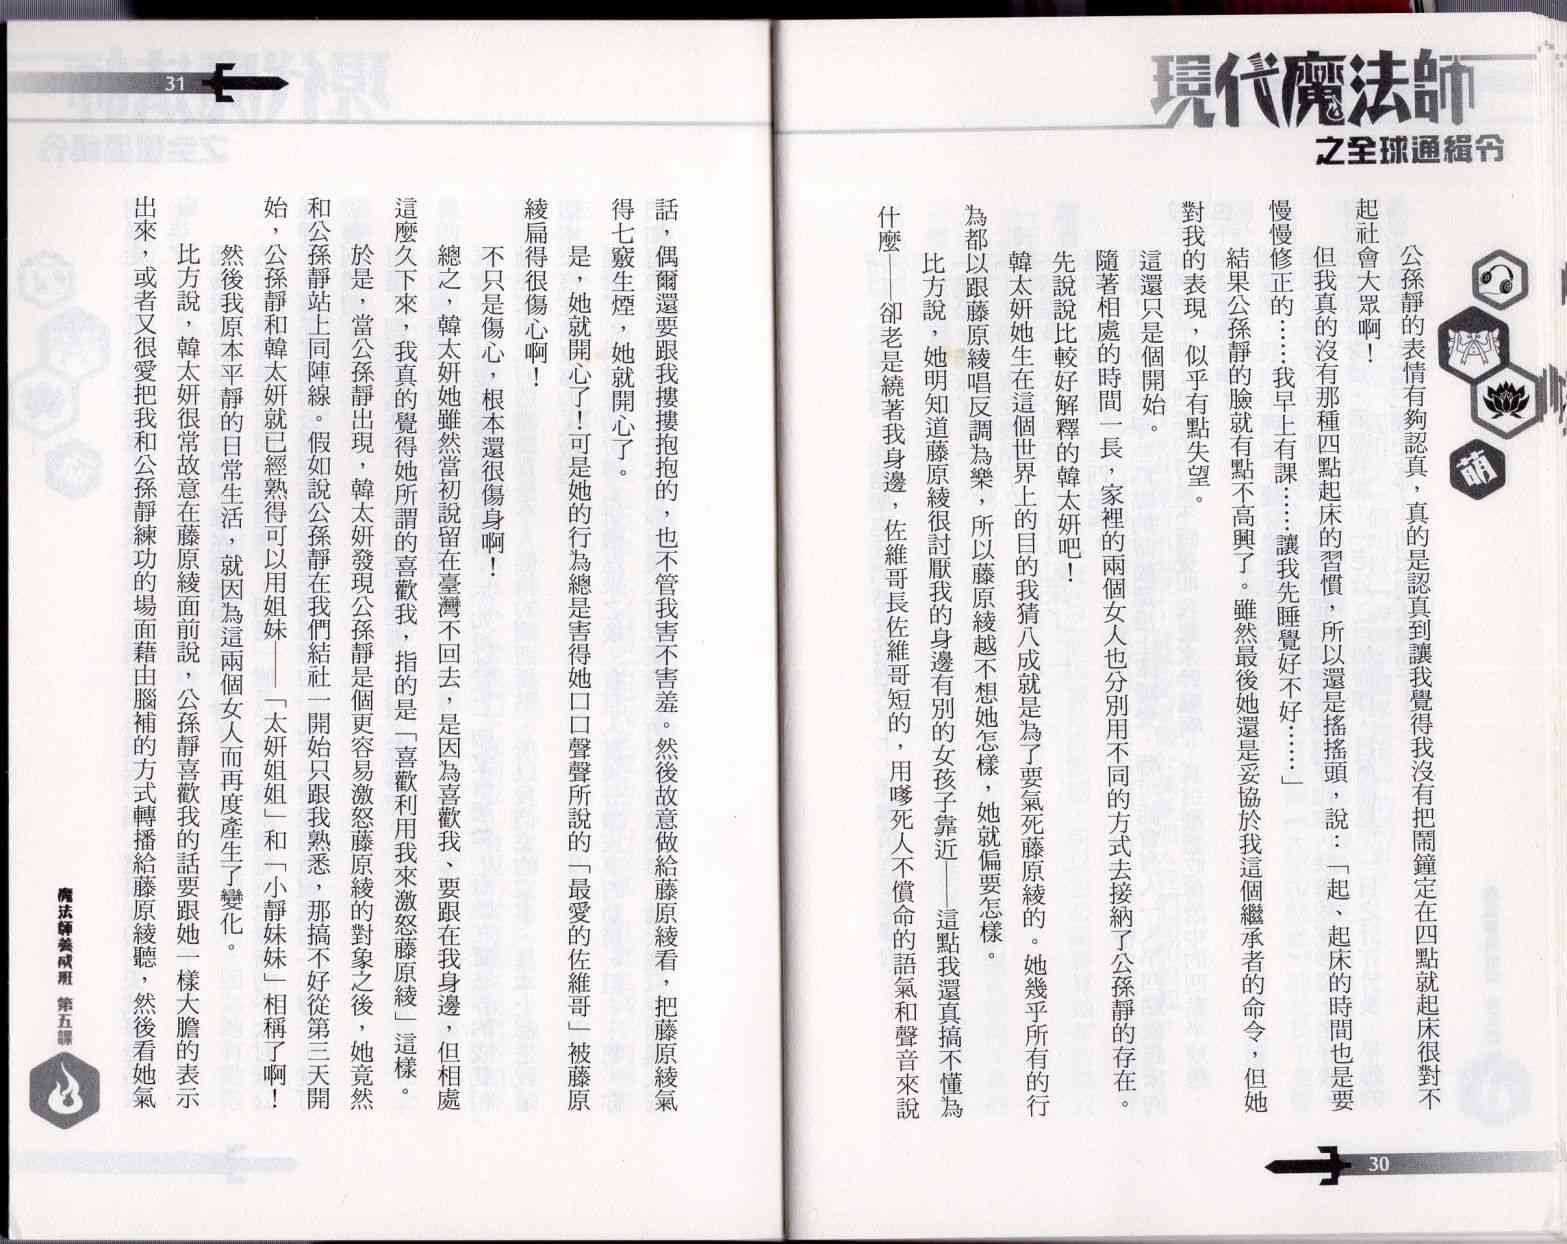 現代魔法師
之全球通緝令
萌
公孫靜的表情有夠認真，真的是認真到讓我覺得我沒有把鬧鐘定在四點就起床很對不
起社會大眾啊！
但我真的沒有那種四點起床的習慣，所以還是搖搖頭，說：「起、起床的時間也是要
慢慢修正的……我早上有課……讓我先睡覺好不好……」
結果公孫靜的臉就有點不高興了。雖然最後她還是妥協於我這個繼承者的命令，但她
對我的表現，似乎有點失望。
這還只是個開始。
隨著相處的時間一長，家裡的兩個女人也分別用不同的方式去接納了公孫靜的存在。
先說說比較好解釋的韓太妍吧！
韓太妍她生在這個世界上的目的我猜八成就是為了要氣死藤原綾的。她幾乎所有的行
為都以跟藤原綾唱反調為樂，所以藤原綾越不想她怎樣，她就偏要怎樣。
比方說，她明知道藤原綾很討厭我的身邊有別的女孩子靠近——這點我還真搞不懂為
什麼——卻老是繞著我身邊，佐維哥長佐維哥短的，用嗲死人不償命的語氣和聲音來說
30
31
話，偶爾還要跟我摟摟抱抱的，也不管我害不害羞。然後故意做給藤原綾看，把藤原綾氣
得七竅生煙，她就開心了。
是，她就開心了！可是她的行為總是害得她口口聲聲所說的「最愛的佐維哥」被藤原
綾扁得很傷心啊！
不只是傷心，根本還很傷身啊！
總之，韓太妍她雖然當初說留在臺灣不回去，是因為喜歡我、要跟在我身邊，但相處
這麼久下來，我真的覺得她所謂的喜歡我，指的是「喜歡利用我來激怒藤原綾」這樣。
於是，當公孫靜出現，韓太妍發現公孫靜是個更容易激怒藤原綾的對象之後，她竟然
和公孫靜站上同陣線。假如說公孫靜在我們結社一開始只跟我熟悉，那搞不好從第三天開
始，公孫靜和韓太妍就已經熟得可以用姐妹——「太妍姐姐」和「小靜妹妹」相稱了啊！
然後我原本平靜的日常生活，就因為這兩個女人而再度產生了變化。
比方說，韓太妍很常故意在藤原綾面前說，公孫靜喜歡我的話要跟她一樣大膽的表示
出來，或者又很愛把我和公孫靜練功的場面藉由腦補的方式轉播給藤原綾聽，然後看她氣
魔法師養成班 第五課